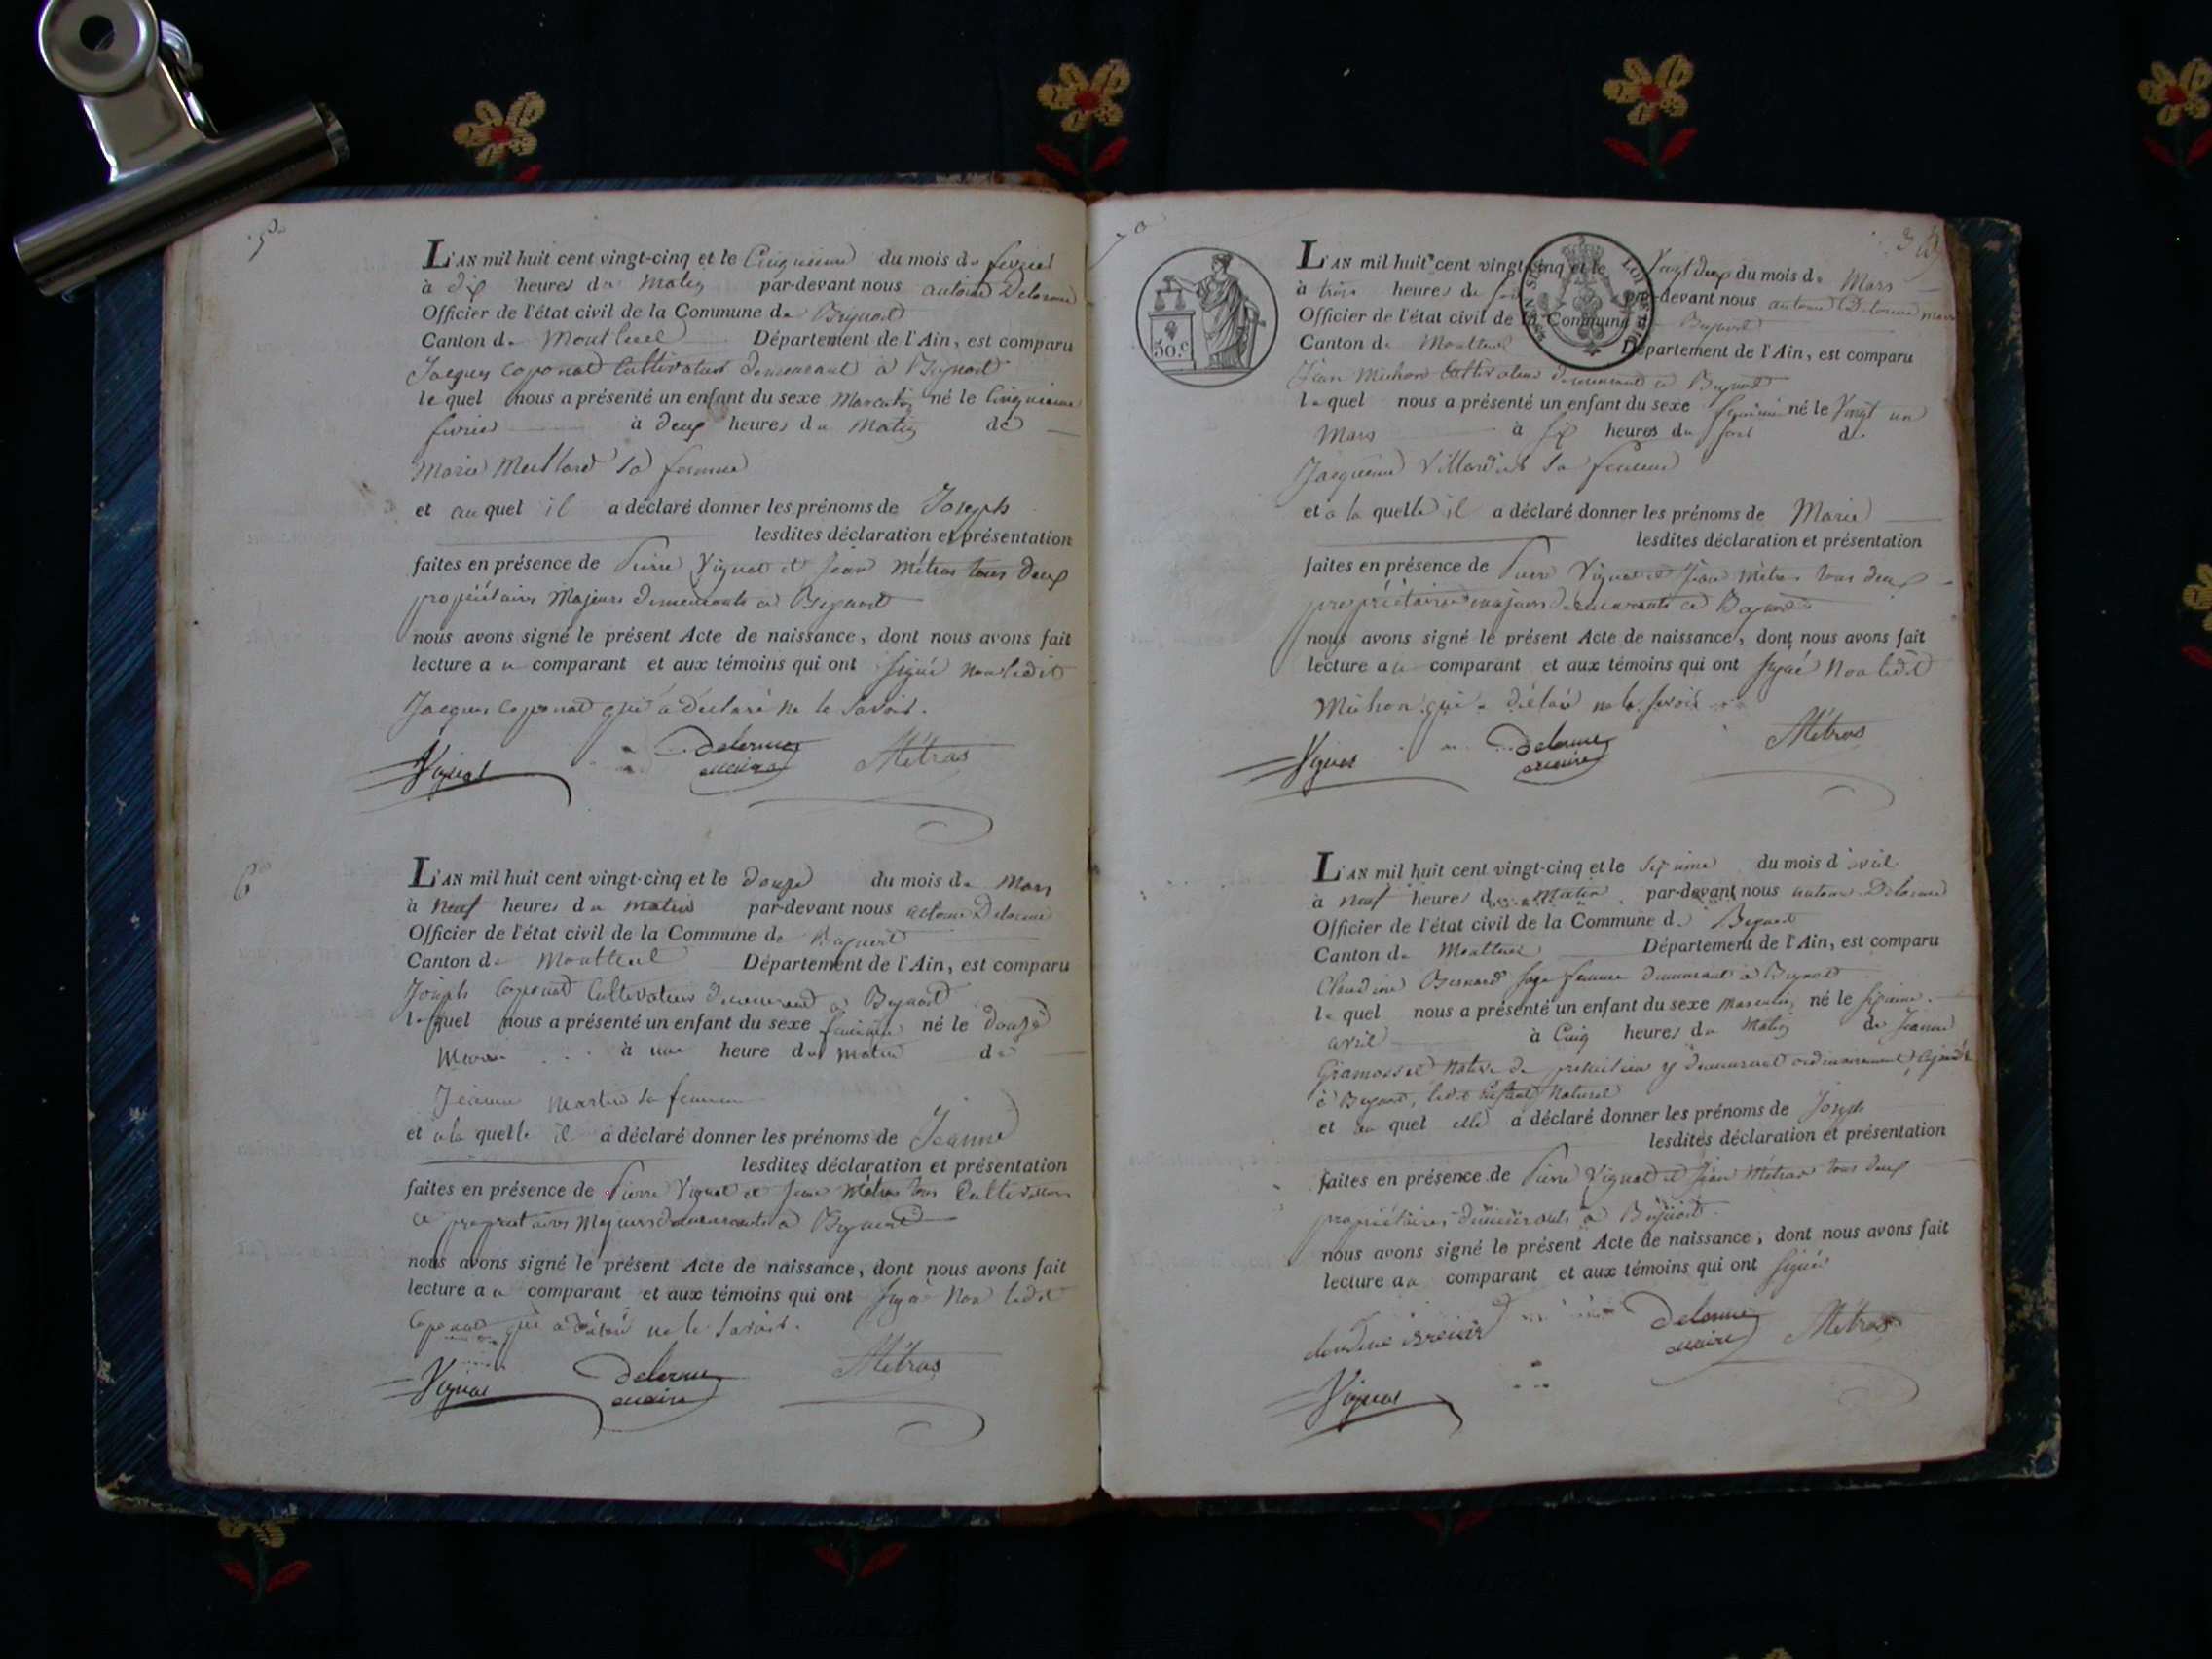 5.
L'AN mil huit cent vingt-cinq et le Cinquieme du mois de fevrier
à dix heures du Matin par-devant nous antoine Delorme
Officier de l'état civil de la Commune de Beynost
Canton de Montluel Département de l'Ain, est comparu
Jacques Coponat Cultivateur demeurant à Beynost
le quel nous a présenté un enfant du sexe Masculin né le Cinquieme
fevrier à deux heures du Matin de
Marie sa femme
et au quel il a déclaré donner les prénoms de Joseph
lesdites déclaration et présentation
faites en présence de Pierre Vignat et Jean Métras tous deux
propriétaires Majeurs demeurants à Beynost
nous avons signé le présent Acte de naissance, dont nous avons fait
lecture au comparant et aux témoins qui ont signé non ledit
Jacques Coponat qui a déclaré ne le savoir.
Vignat Delorme Métras
maire
6
L'AN mil huit cent vingt-cinq et le douze du mois de Mars
à Neuf heures du matin par-devant nous antoine Delorme
Officier de l'état civil de la Commune de Beynost
Canton de Montluel Département de l'Ain, est comparu
Joseph Coponat Cultivateur demeurant à Beynost
le quel nous a présenté un enfant du sexe feminin né le douze
Mars à une heure du matin de
Jeanne Martin sa femme
et a la quelle il a déclaré donner les prénoms de Jeanne
lesdites déclaration et présentation
faites en présence de Pierre Vignat et Jean Métras tous Cultivateurs
et propriétaires Majeurs demeurants à Beynost
nous avons signé le présent Acte de naissance, dont nous avons fait
lecture au comparant et aux témoins qui ont signé non ledit
Coponat qui a déclaré ne le savoir.
Vignat Delorme Métras
maire
7
50.c
L'AN mil huit cent vingt-cinq et le Vingt deux du mois de Mars
à trois heures du soir par-devant nous antoine Delorme maire
Officier de l'état civil de la Commune de Beynost
Canton de Montluel Département de l'Ain, est comparu
Jean Michon Cultivateur demeurant à Beynost
le quel nous a présenté un enfant du sexe feminin né le Vingt un
Mars à six heures du soir de
Jacqueme sa femme
et a la quelle il a déclaré donner les prénoms de Marie
lesdites déclaration et présentation
faites en présence de Pierre Vignat et Jean Métras tous deux
propriétaires majeurs demeurants à Beynost
nous avons signé le présent Acte de naissance, dont nous avons fait
lecture au comparant et aux témoins qui ont signé Non ledit
Michon qui a déclaré ne le savoir
Vignat Delorme Métras
maire
L'AN mil huit cent vingt-cinq et le septieme du mois d'avril
à neuf heures du Matin par-devant nous antoine Delorme
Officier de l'état civil de la Commune de Beynost
Canton de Montluel Département de l'Ain, est comparu
Claudine sage femme demeurant à Beynost
le quel nous a présenté un enfant du sexe Masculin né le septieme
avril à Cinq heures du Matin de Jeanne
native de y demeurant ordinairement
à Beynost, ledit Enfant Naturel
et au quel elle a déclaré donner les prénoms de Joseph
lesdites déclaration et présentation
faites en présence de Pierre Vignat et Jean Métras tous deux
propriétaires demeurants à Beynost
nous avons signé le présent Acte de naissance, dont nous avons fait
lecture au comparant et aux témoins qui ont signé
Delorme Métras
maire
Vignat